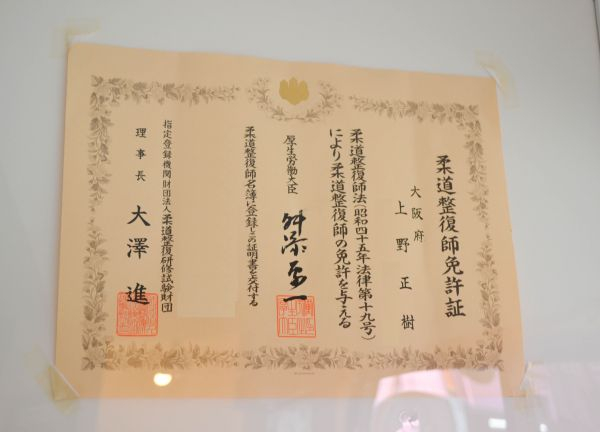 柔道整復師免許証
大阪府
上野正樹
柔道整復師法(昭和四十五年法律第十九号)
により柔道整復師の免許を与える
厚生労働大臣 舛添要一
柔道整復師名簿に登録しこの証明書を交付する
指定登録機関財団法人柔道整復研修試験財団
理事長 大澤進